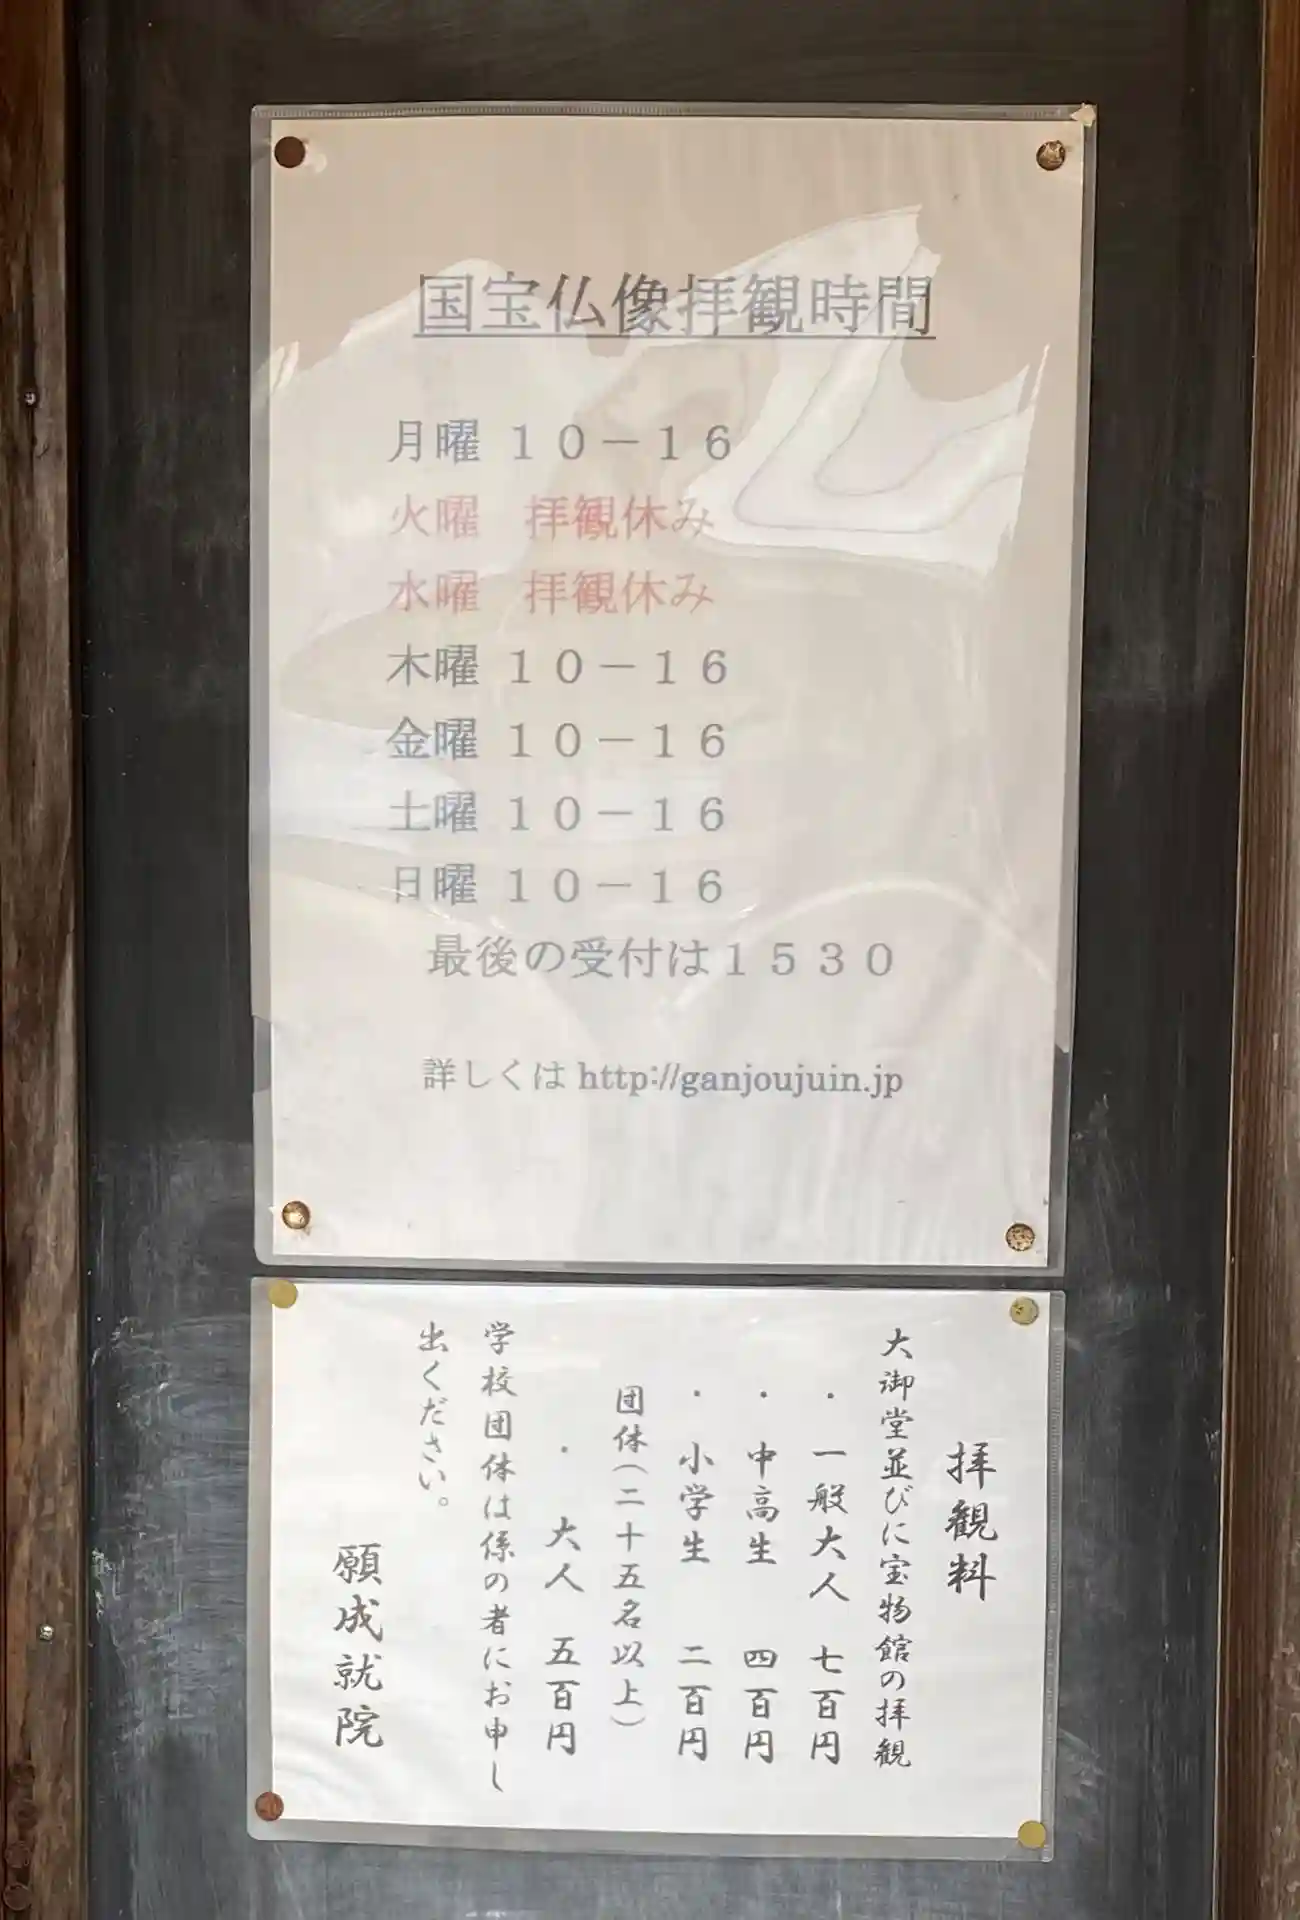 国宝仏像拝観時間
月曜 １０－１６
火曜　拝観休み
水曜　拝観休み
木曜 １０－１６
金曜 １０－１６
土曜 １０－１６
日曜 １０－１６
最後の受付は１５３０
詳しくは http://ganjoujuin.jp
拝観料
大御堂並びに宝物館の拝観
・一般大人　七百円
・中高生　四百円
・小学生　二百円
団体（二十五名以上）
・大人　五百円
学校団体は係の者にお申し
出ください。
願成就院